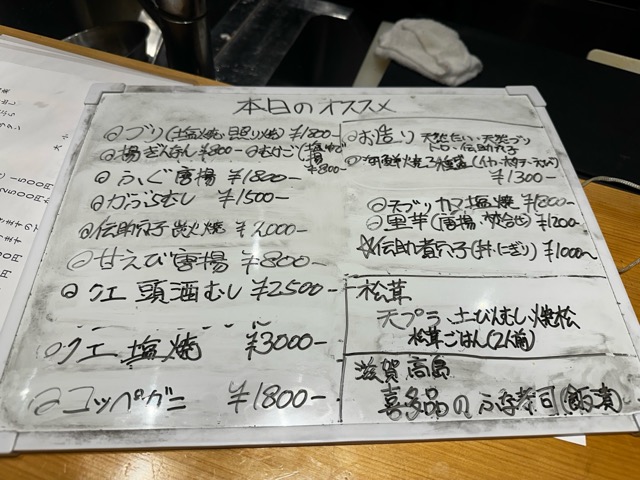 本日のオススメ
◎ブリ(塩焼 照り焼) ¥1800-
◎揚ぎんなん ¥800-
¥800-
◎ふぐ唐揚 ¥1800-
◎かぶらむし ¥1500-
◎伝助穴子 炭火焼 ¥2,000-
◎甘えび唐揚 ¥800-
◎クエ 頭酒むし ¥2500-
◎クエ 塩焼 ¥3000-
◎コッペガニ ¥1800-
◎お造り 天然たい・天然ブリ
トロ・伝助穴子
¥1300-
天ブリカマ塩焼 ¥1800-
◎里芋(唐揚 ¥1200-
☆伝助煮穴子(丼にぎり) ¥1000～
松茸
天プラ、土びんむし、焼松
松茸ごはん(2人前)
滋賀 高島
喜多品の ふな寿司(飯漬)